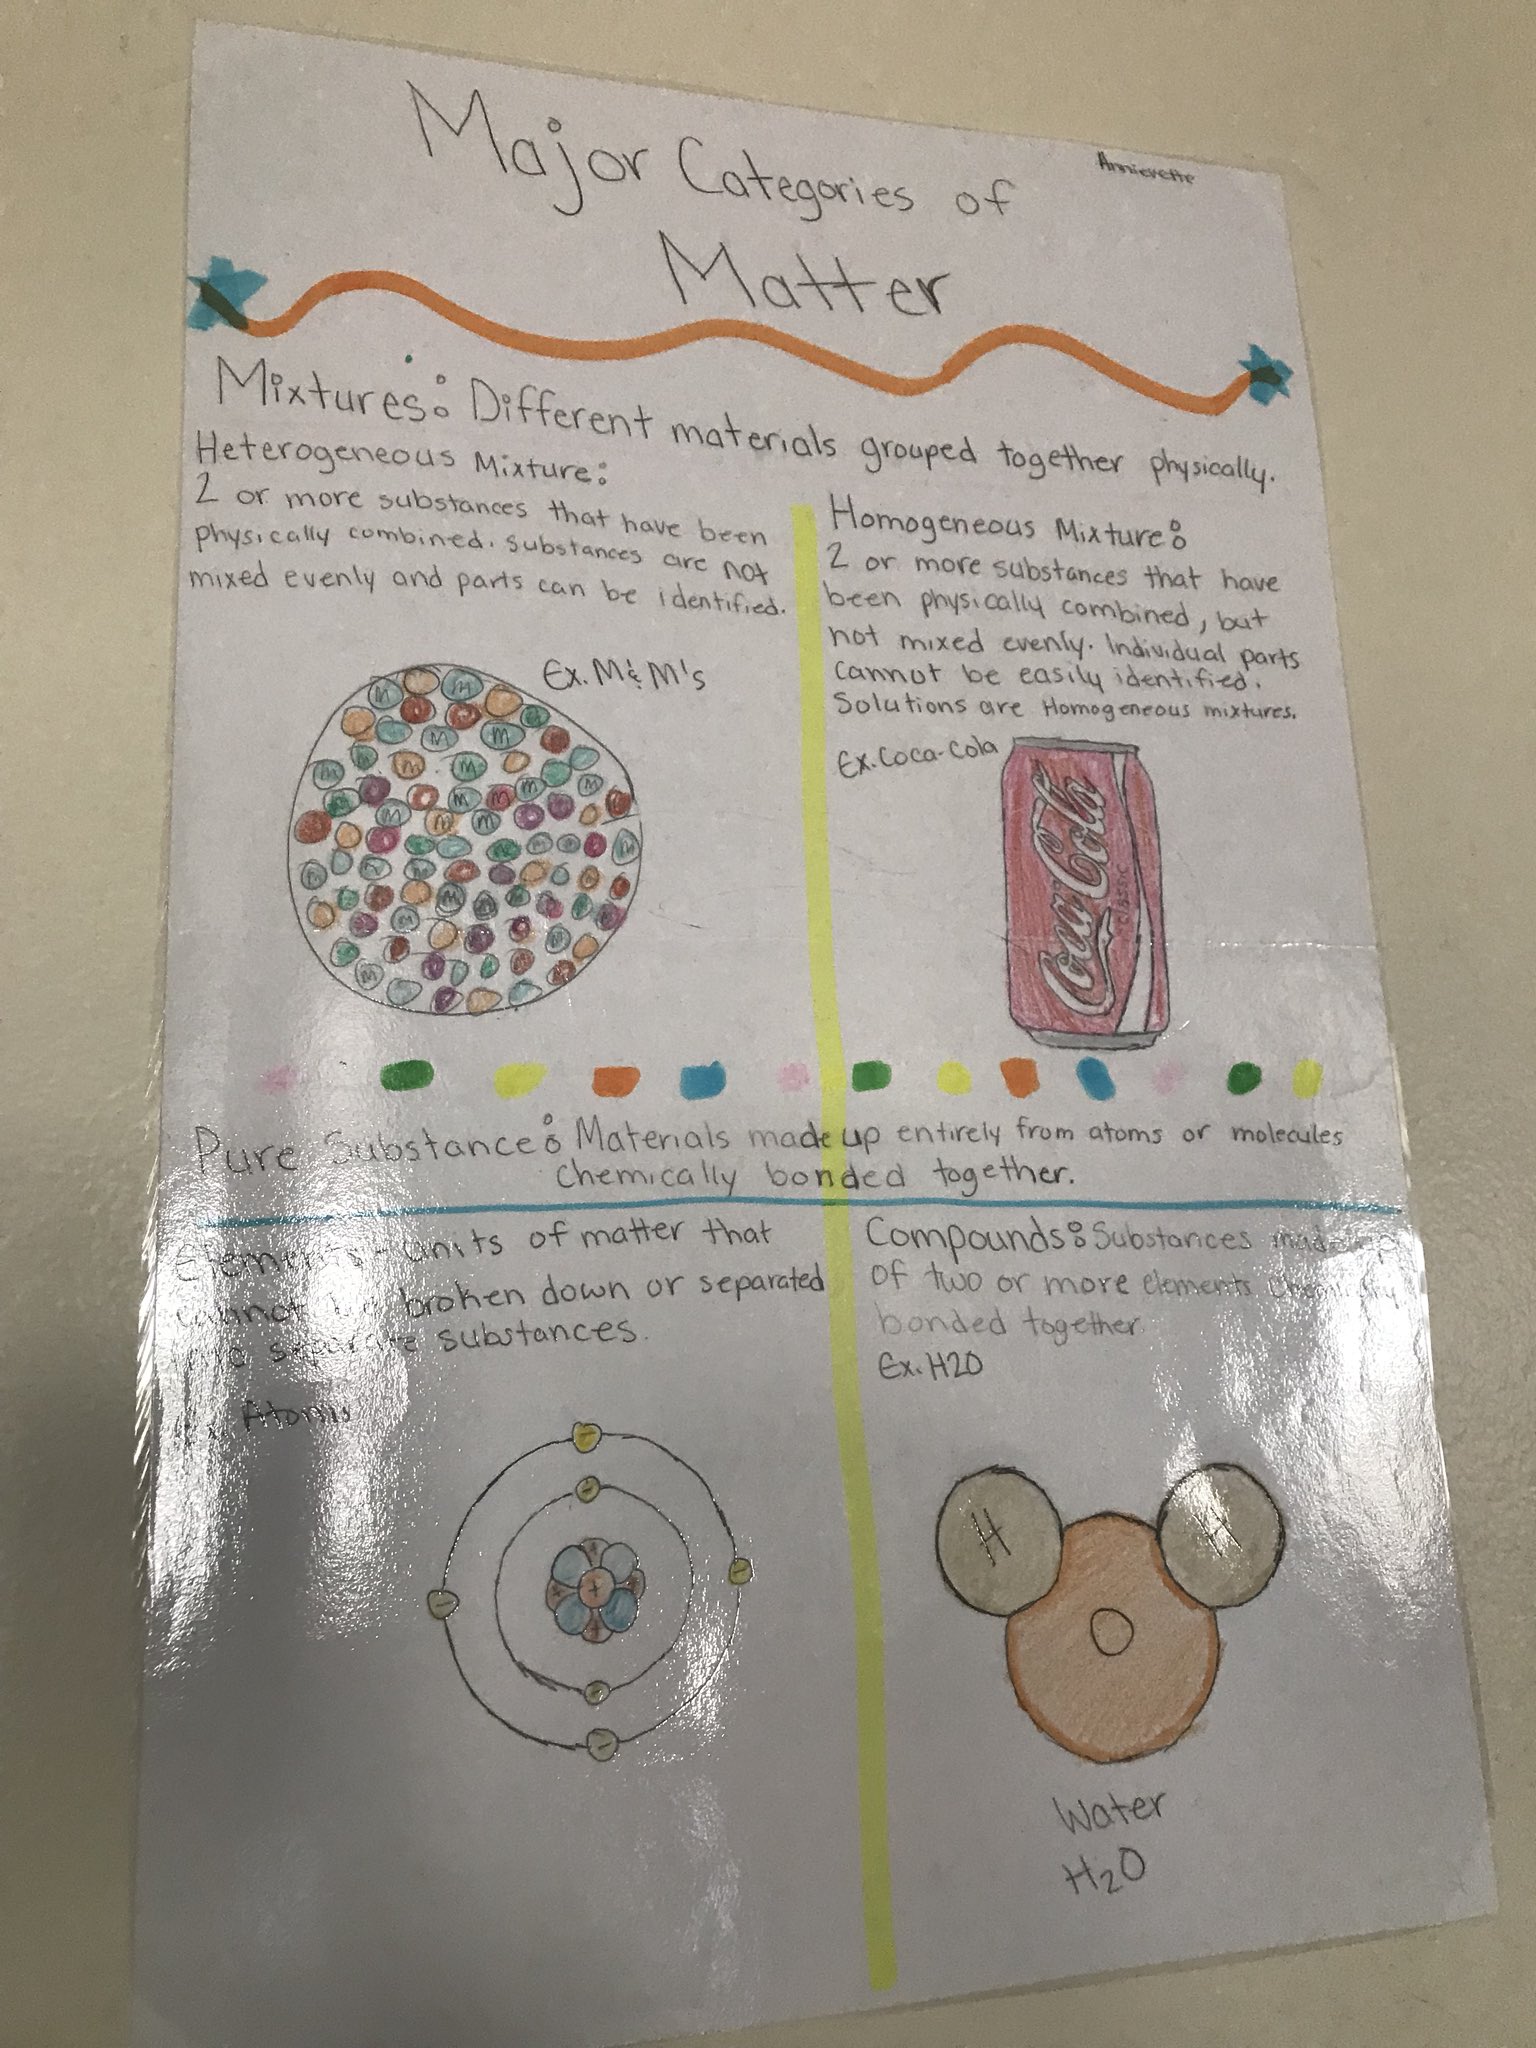 Major Categories of
Annierette
Matter
Mixtures: Different materials grouped together physically.
Heterogeneous Mixture:
2 or more substances that have been
physically combined. substances are not
mixed evenly and parts can be identified.
Ex. M&M's
Homogeneous Mixture:
2 or more substances that have
been physically combined, but
not mixed evenly. Individual parts
cannot be easily identified.
Solutions are Homogeneous mixtures.
Ex. Coca-Cola
Coca-Cola
classic
Pure Substance: Materials made up entirely from atoms or molecules
chemically bonded together.
Elements - units of matter that
cannot be broken down or separated
into separate substances.
Ex. Atoms
Compounds: Substances made up
of two or more elements chemically
bonded together.
Ex. H2O
H
H
O
Water
H2O